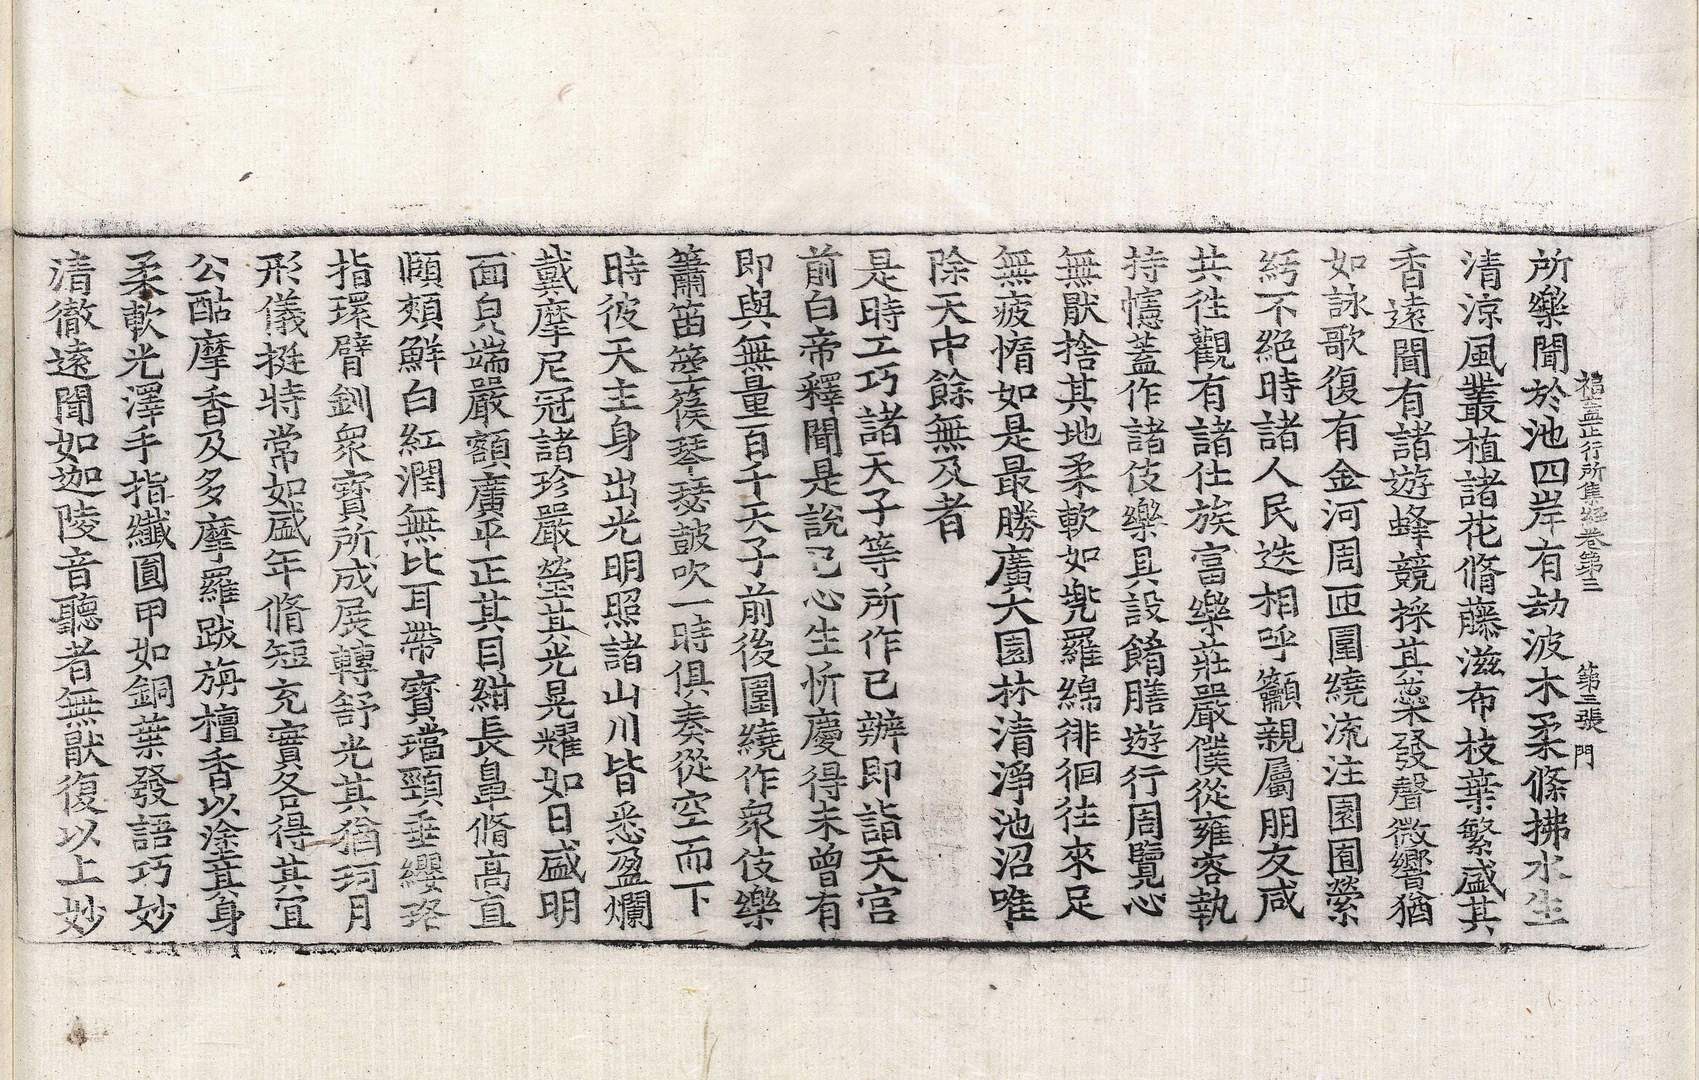 福蓋正行所集經卷第三 第三張 門
所樂聞於池四岸有劫波木柔條拂水生
清涼風叢植諸花脩藤滋布枝葉繁盛其
香遠聞有諸遊蜂競採其蘂發聲微響猶
如詠歌復有金河周匝圍繞流注園囿縈
紆不絶時諸人民迭相呼籲親屬朋友咸
共往觀有諸仕族富樂莊嚴僕從雍容執
持幰蓋作諸伎樂具設餚膳遊行周覽心
無猒捨其地柔軟如兠羅綿徘徊往來足
無疲惰如是最勝廣大園林清淨池沼唯
除天中餘無及者
是時工巧諸天子等所作已辦即詣天宮
前白帝釋聞是說已心生忻慶得未曾有
即與無量百千天子前後圍繞作衆伎樂
簫笛箜篌琴瑟鼓吹一時俱奏從空而下
時彼天主身出光明照諸山川皆悉盈爛
戴摩尼冠諸珍嚴瑩其光晃耀如日盛明
面皃端嚴額廣平正其目紺長鼻脩高直
頤頰鮮白紅潤無比耳帶寶璫頸垂纓珞
指環臂釧衆寶所成展轉舒光其猶珂月
形儀挺特常如盛年脩短充實各得其宜
公酤摩香及多摩羅跋旃檀香以塗其身
柔軟光澤手指纖圓甲如銅葉發語巧妙
清徹遠聞如迦陵音聽者無猒復以上妙